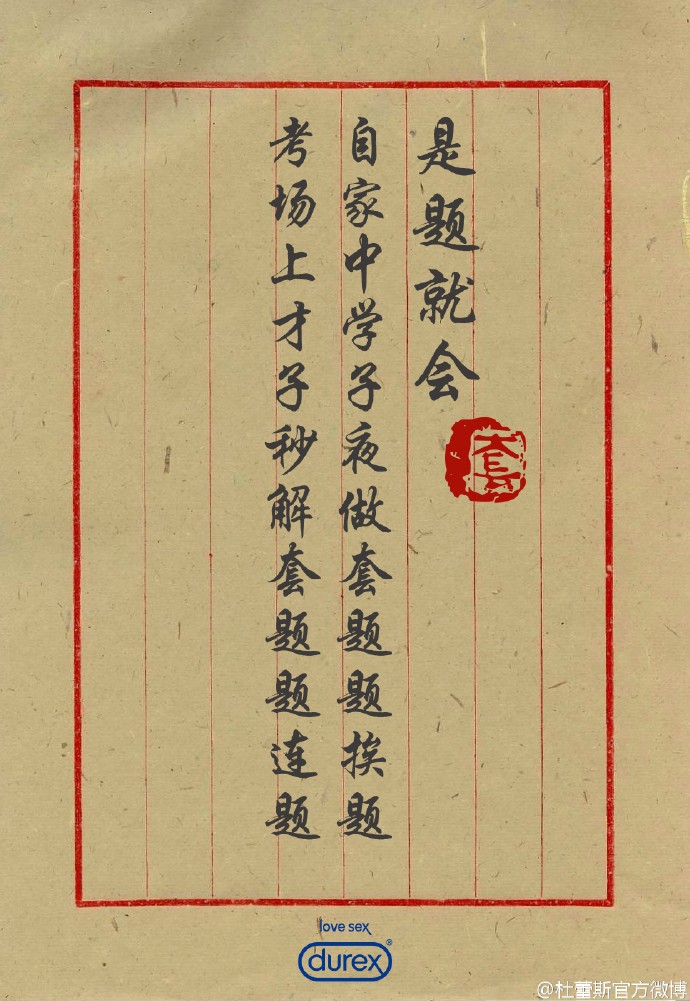 是题就会
套
自家中学子夜做套题题挨题
考场上才子秒解套题题连题
love sex
durex®
@杜蕾斯官方微博